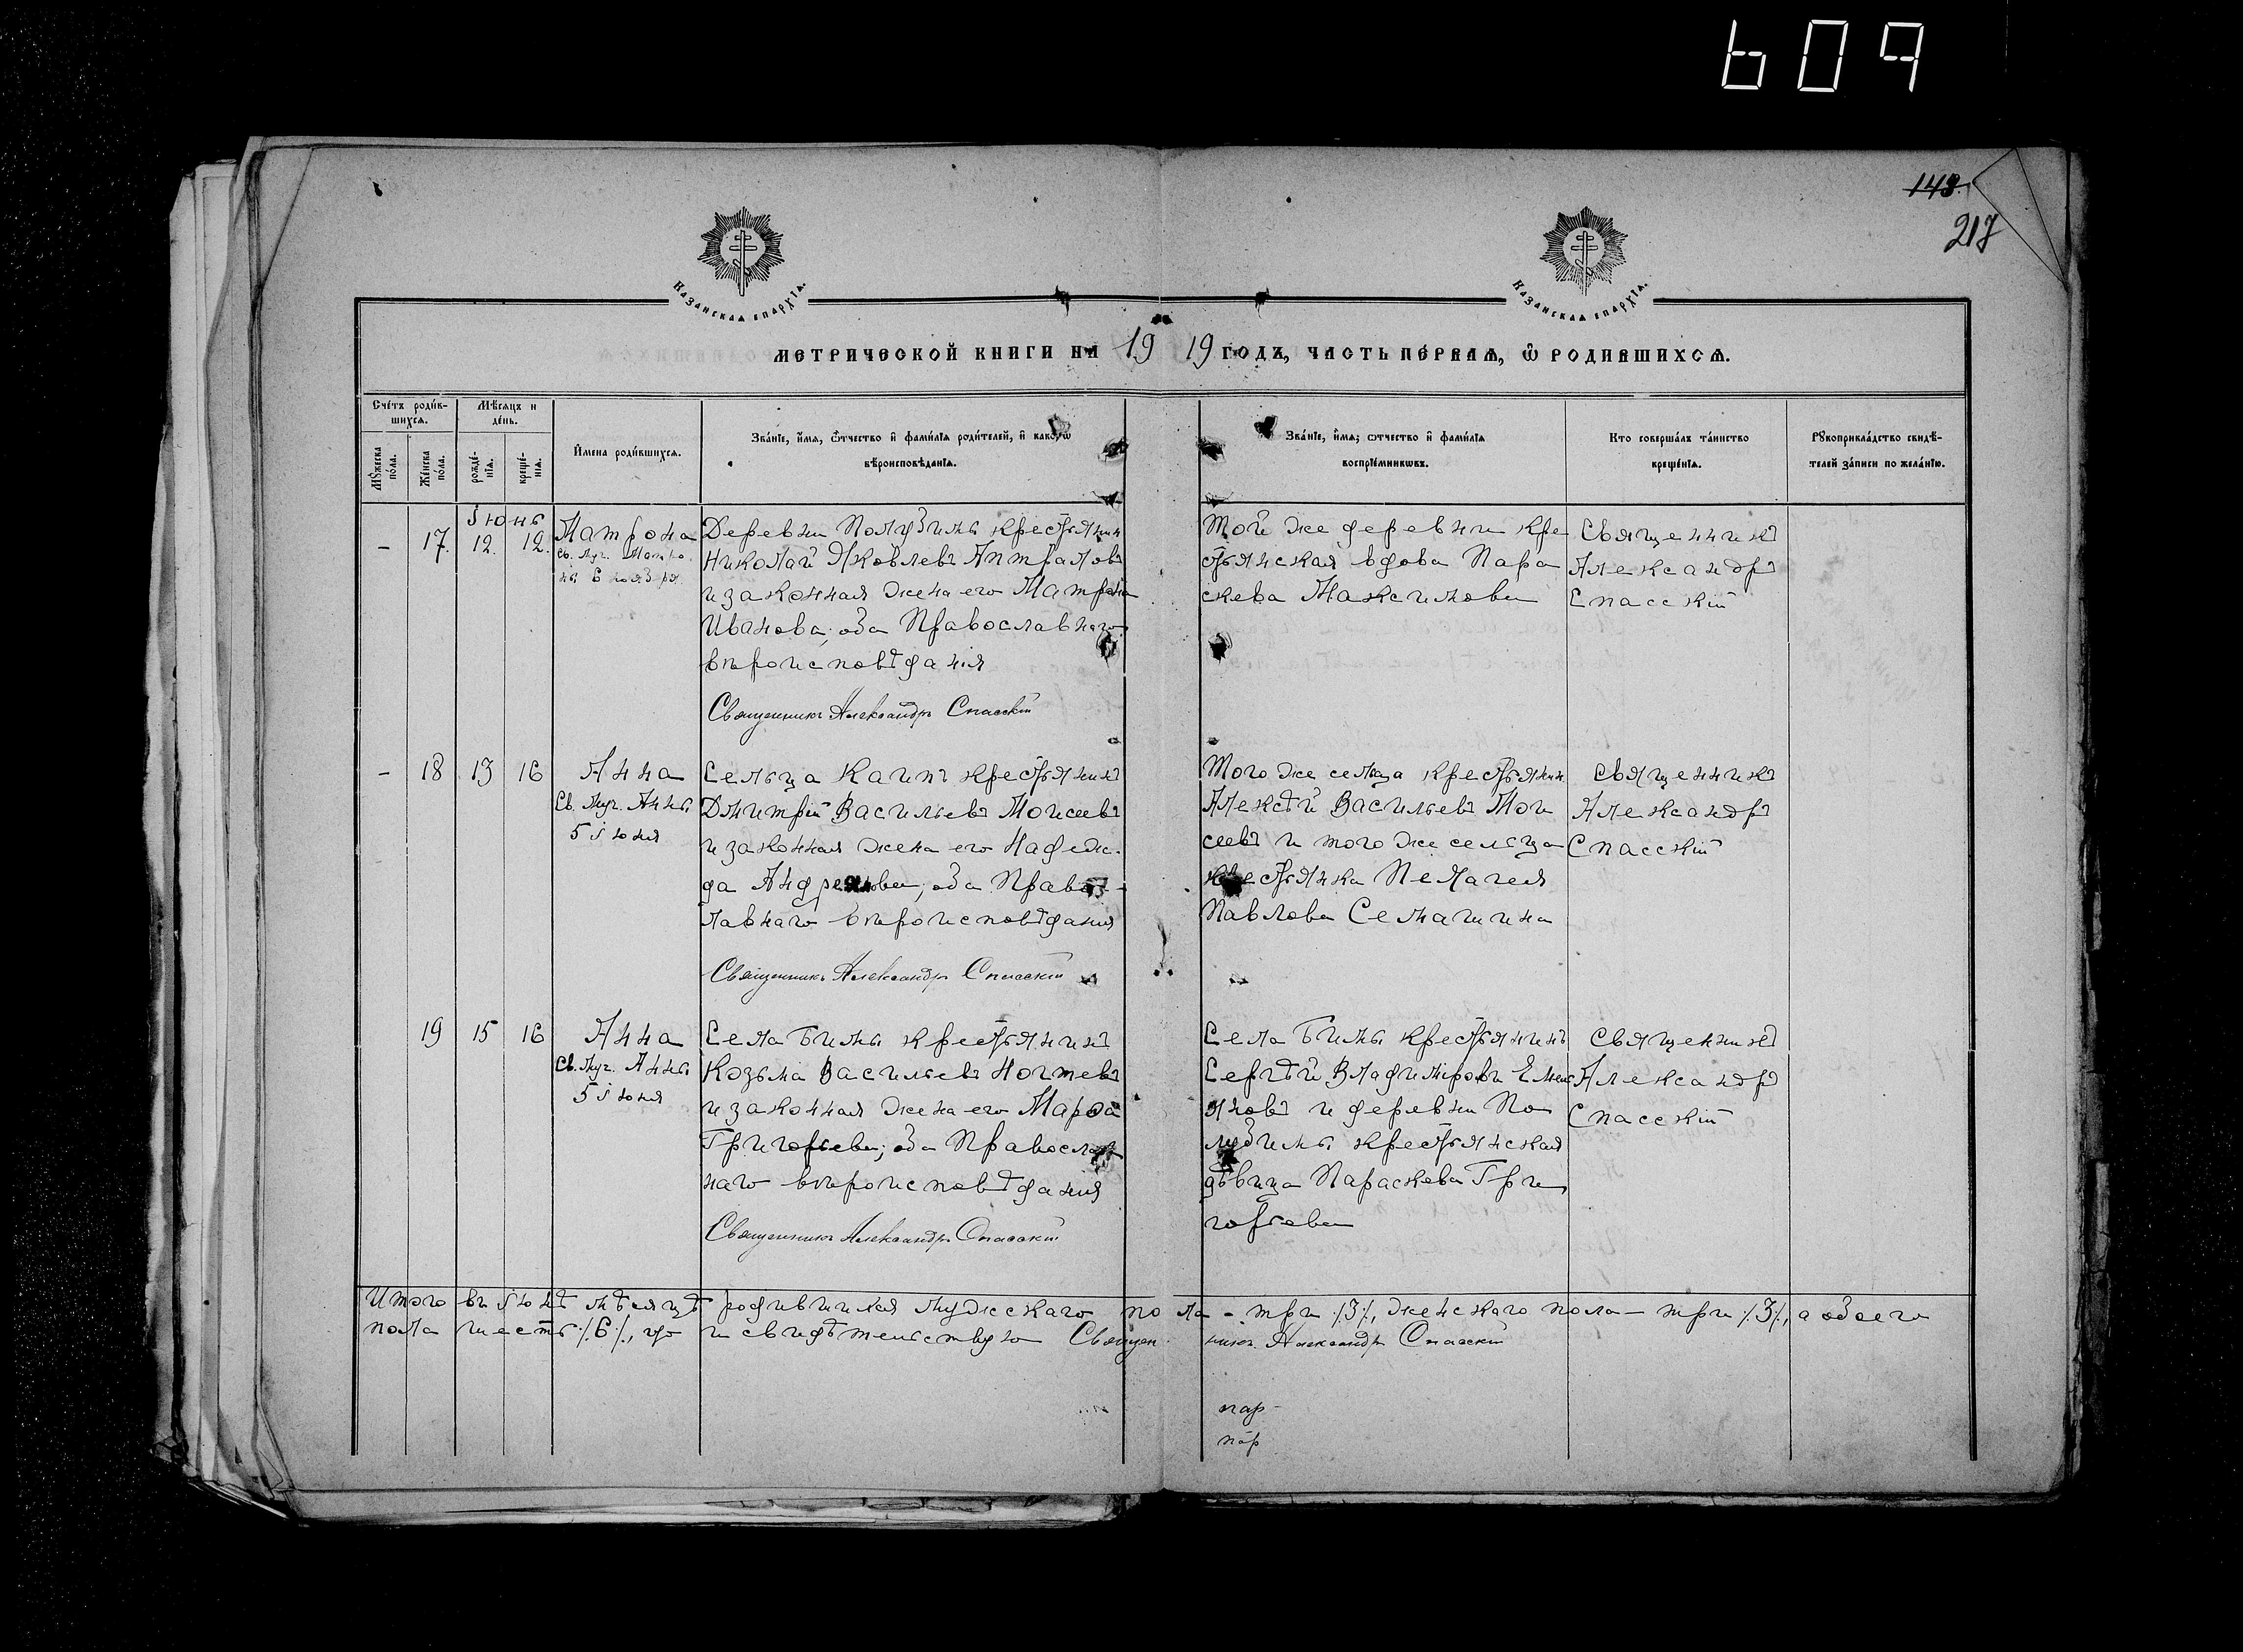 609
148.
217
Казанская епархїѧ.
Казанская епархїѧ.
метрической книги на 1919 годъ, часть первая, ѿ родившихсѧ.
Счетъ родив-
шихсѧ.
Мѣсяцъ и
день.
Имена родившихсѧ.
Званїе, имѧ, отчество и фамилїя родителей, и какого
вѣроисповѣданїѧ.
Званїе, имѧ, отчество и фамилїѧ
воспрїемниковъ.
Кто совершалъ таинство
крещенїѧ.
Рꙋкоприкладство свидѣ-
телей записи по желанїю.
Мꙋжеска
пола.
Женска
пола.
рожде-
нїѧ.
креще-
нїѧ.
Іюнь
- 17. 12. 12.
Матрона
Св. Муч. Матро
ны 6 ноября
Деревни Полузимы крестьянин
Николай Яковлевъ
и законная жена его Матрона
Иванова; оба Православнаго
вѣроисповѣданія
Священникъ Александръ Спасскій
Той же деревни кре
стьянская вдова Пара
скева Максимова
Священникъ
Александръ
Спасскій
- 18 13 16
Анна
Св. Муч. Анны
5 іюня
Сельца Каипъ крестьянинъ
Дмитрій Васильевъ Моисеевъ
и законная жена его Надеж-
да Андреянова; оба Правос-
лавнаго вѣроисповѣданія
Священникъ Александръ Спасскій
Того же сельца крестьянин
Алексѣй Васильевъ Мои
сеевъ и того же сельца
крестьянка Пелагея
Павлова Семагина
Священникъ
Александръ
Спасскій
19 15 16
Анна
Св. Муч. Анны
5 іюня
Села Бимы крестьянинъ
Козьма Васильевъ Ногтевъ
и законная жена его Марѳа
Григорьева; оба Православ
наго вѣроисповѣданія
Священникъ Александръ Спасскій
Села Бимы крестьянинъ
Сергѣй Владиміровъ Емел
яновъ и деревни По
лузимы крестьянская
дѣвица Параскева Гри
горьева
Священникъ
Александръ
Спасскій
Итого въ Іюнѣ мѣсяцѣ родившихся мужскаго пола - три /3/, женскаго пола - три /3/, а обоего
пола шесть /6/, что и свидѣтельствую Священникъ Александръ Спасскій
пар-
пар